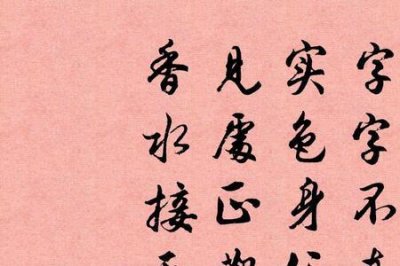 字字不
实色身
见处正
香水接